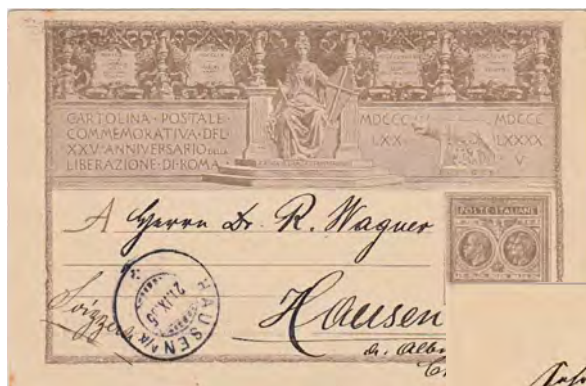 CARTOLINA · POSTALE
COMMEMORATIVA · DEL
XXV · ANNIVERSARIO DELLA
LIBERAZIONE · DI · ROMA ·
MDCCC
LXX
MDCCC
LXXXX
V
POSTE · ITALIANE
A Herrn Dr. R. Wagner
Hausen
Svizzera
HAUSEN A/A
21.IX.95